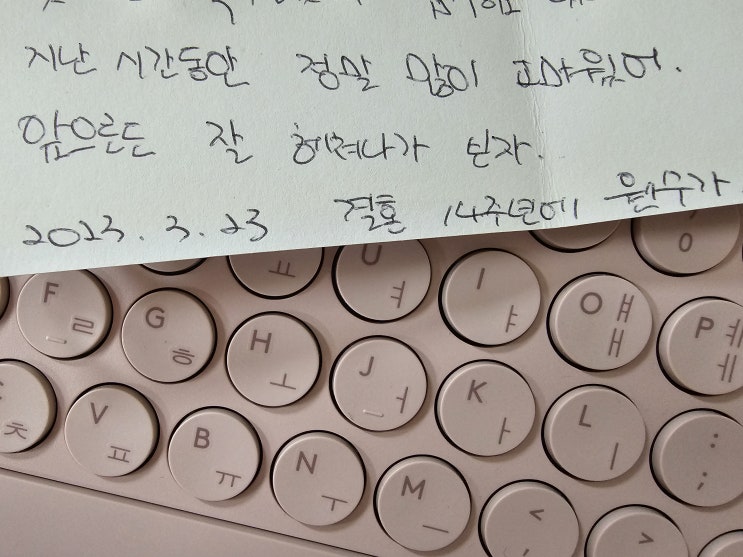 지난 시간동안 정말 많이 고마웠어.
앞으로도 잘 헤쳐나가 보자.
2023. 3. 23 결혼 14주년에 원수가
U ㅕ
I ㅑ
O ㅒ ㅐ
P ㅖ ㅔ
0
ㅛ
F ㄹ
G ㅎ
H ㅗ
J ㅓ
K ㅏ
L ㅣ
: ;
ㅊ
V ㅍ
B ㅠ
N ㅜ
M ㅡ
<
>